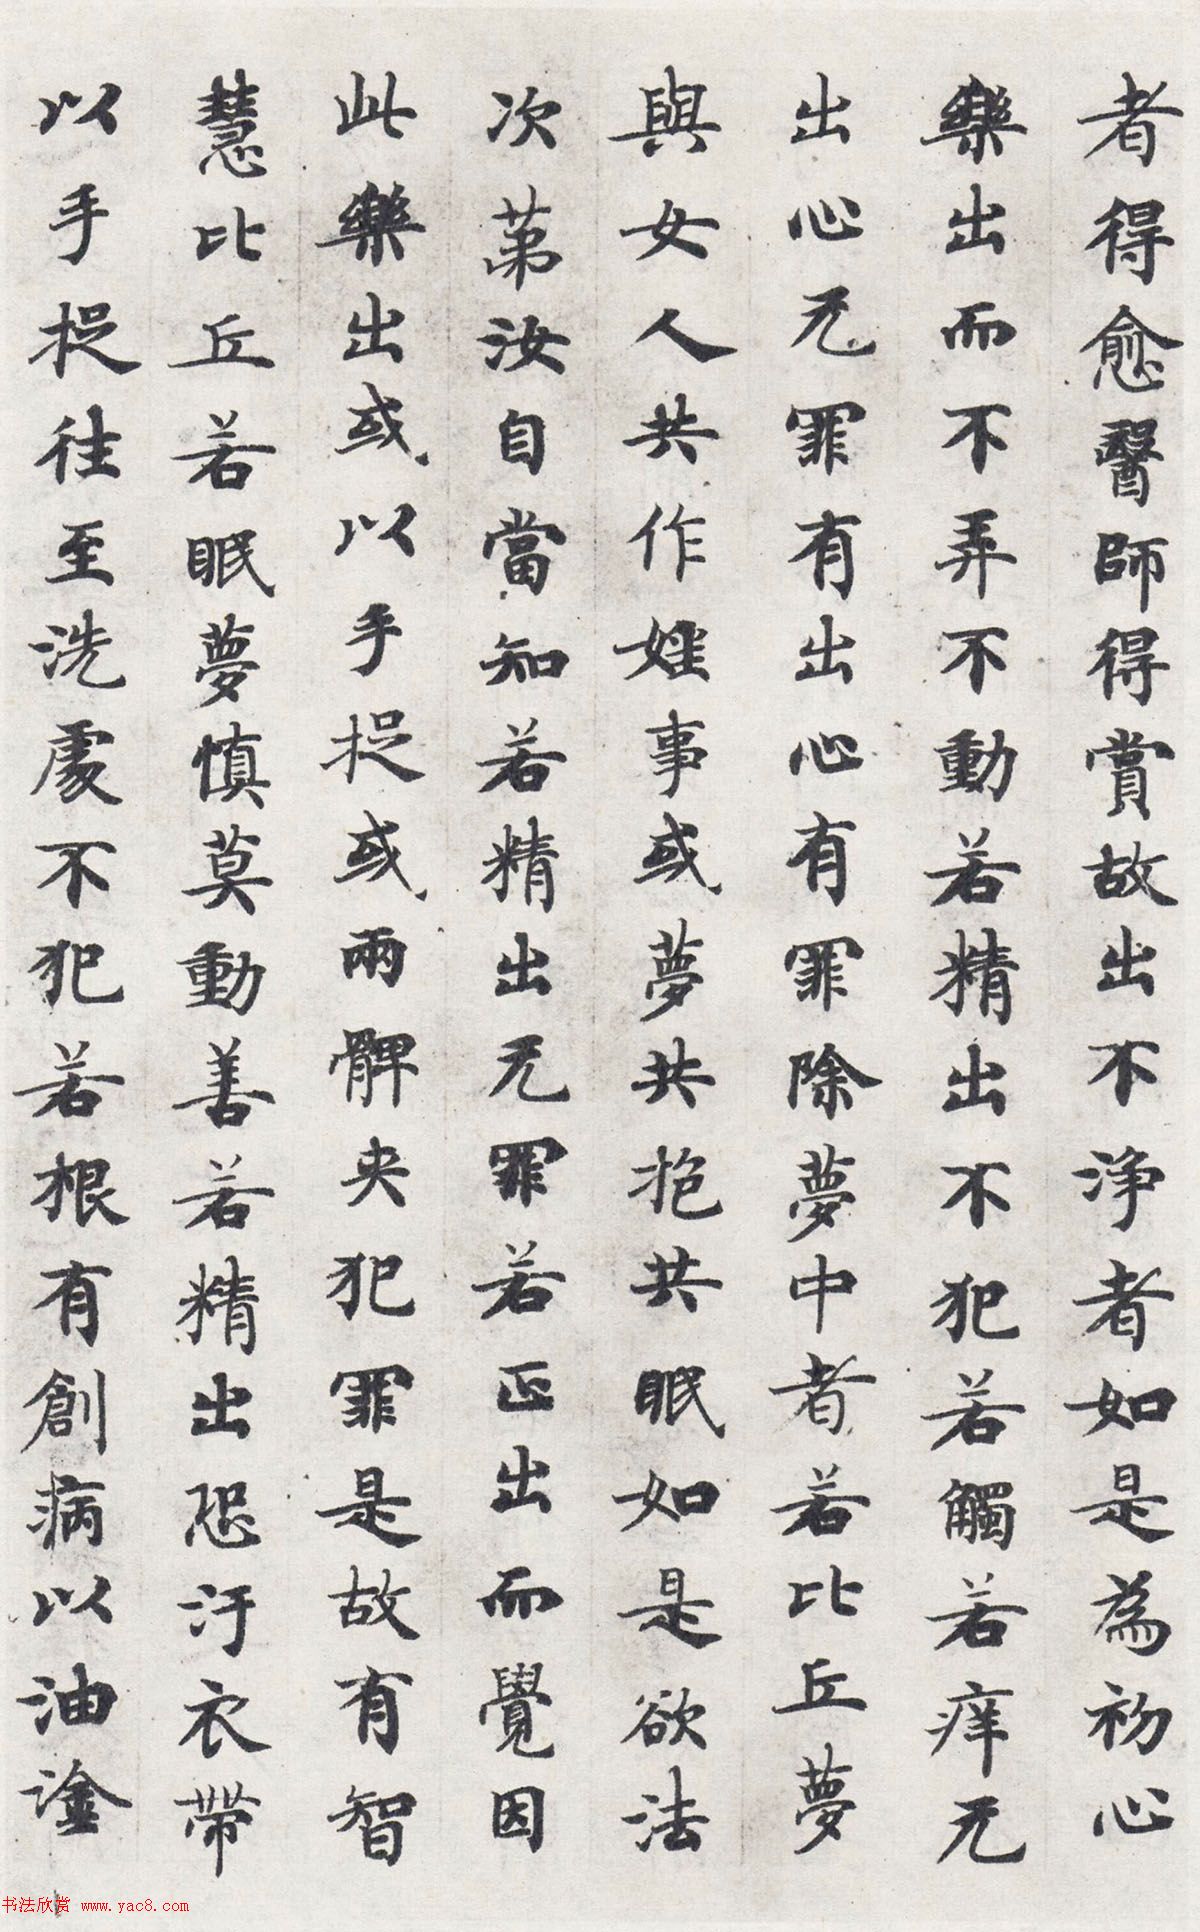 者得愈醫師得賞故出不淨者如是為初心
樂出而不弄不動若精出不犯若觸若痒无
出心无罪有出心有罪除夢中者若比丘夢
與女人共作婬事或夢共抱共眠如是欲法
次苐汝自當知若精出无罪若正出而覺因
此樂出或以手捉或兩髀夾犯罪是故有智
慧比丘若眠夢慎莫動善若精出恐汙衣帶
以手捉往至洗處不犯若根有創病以油塗
书法欣赏 www.yac8.com